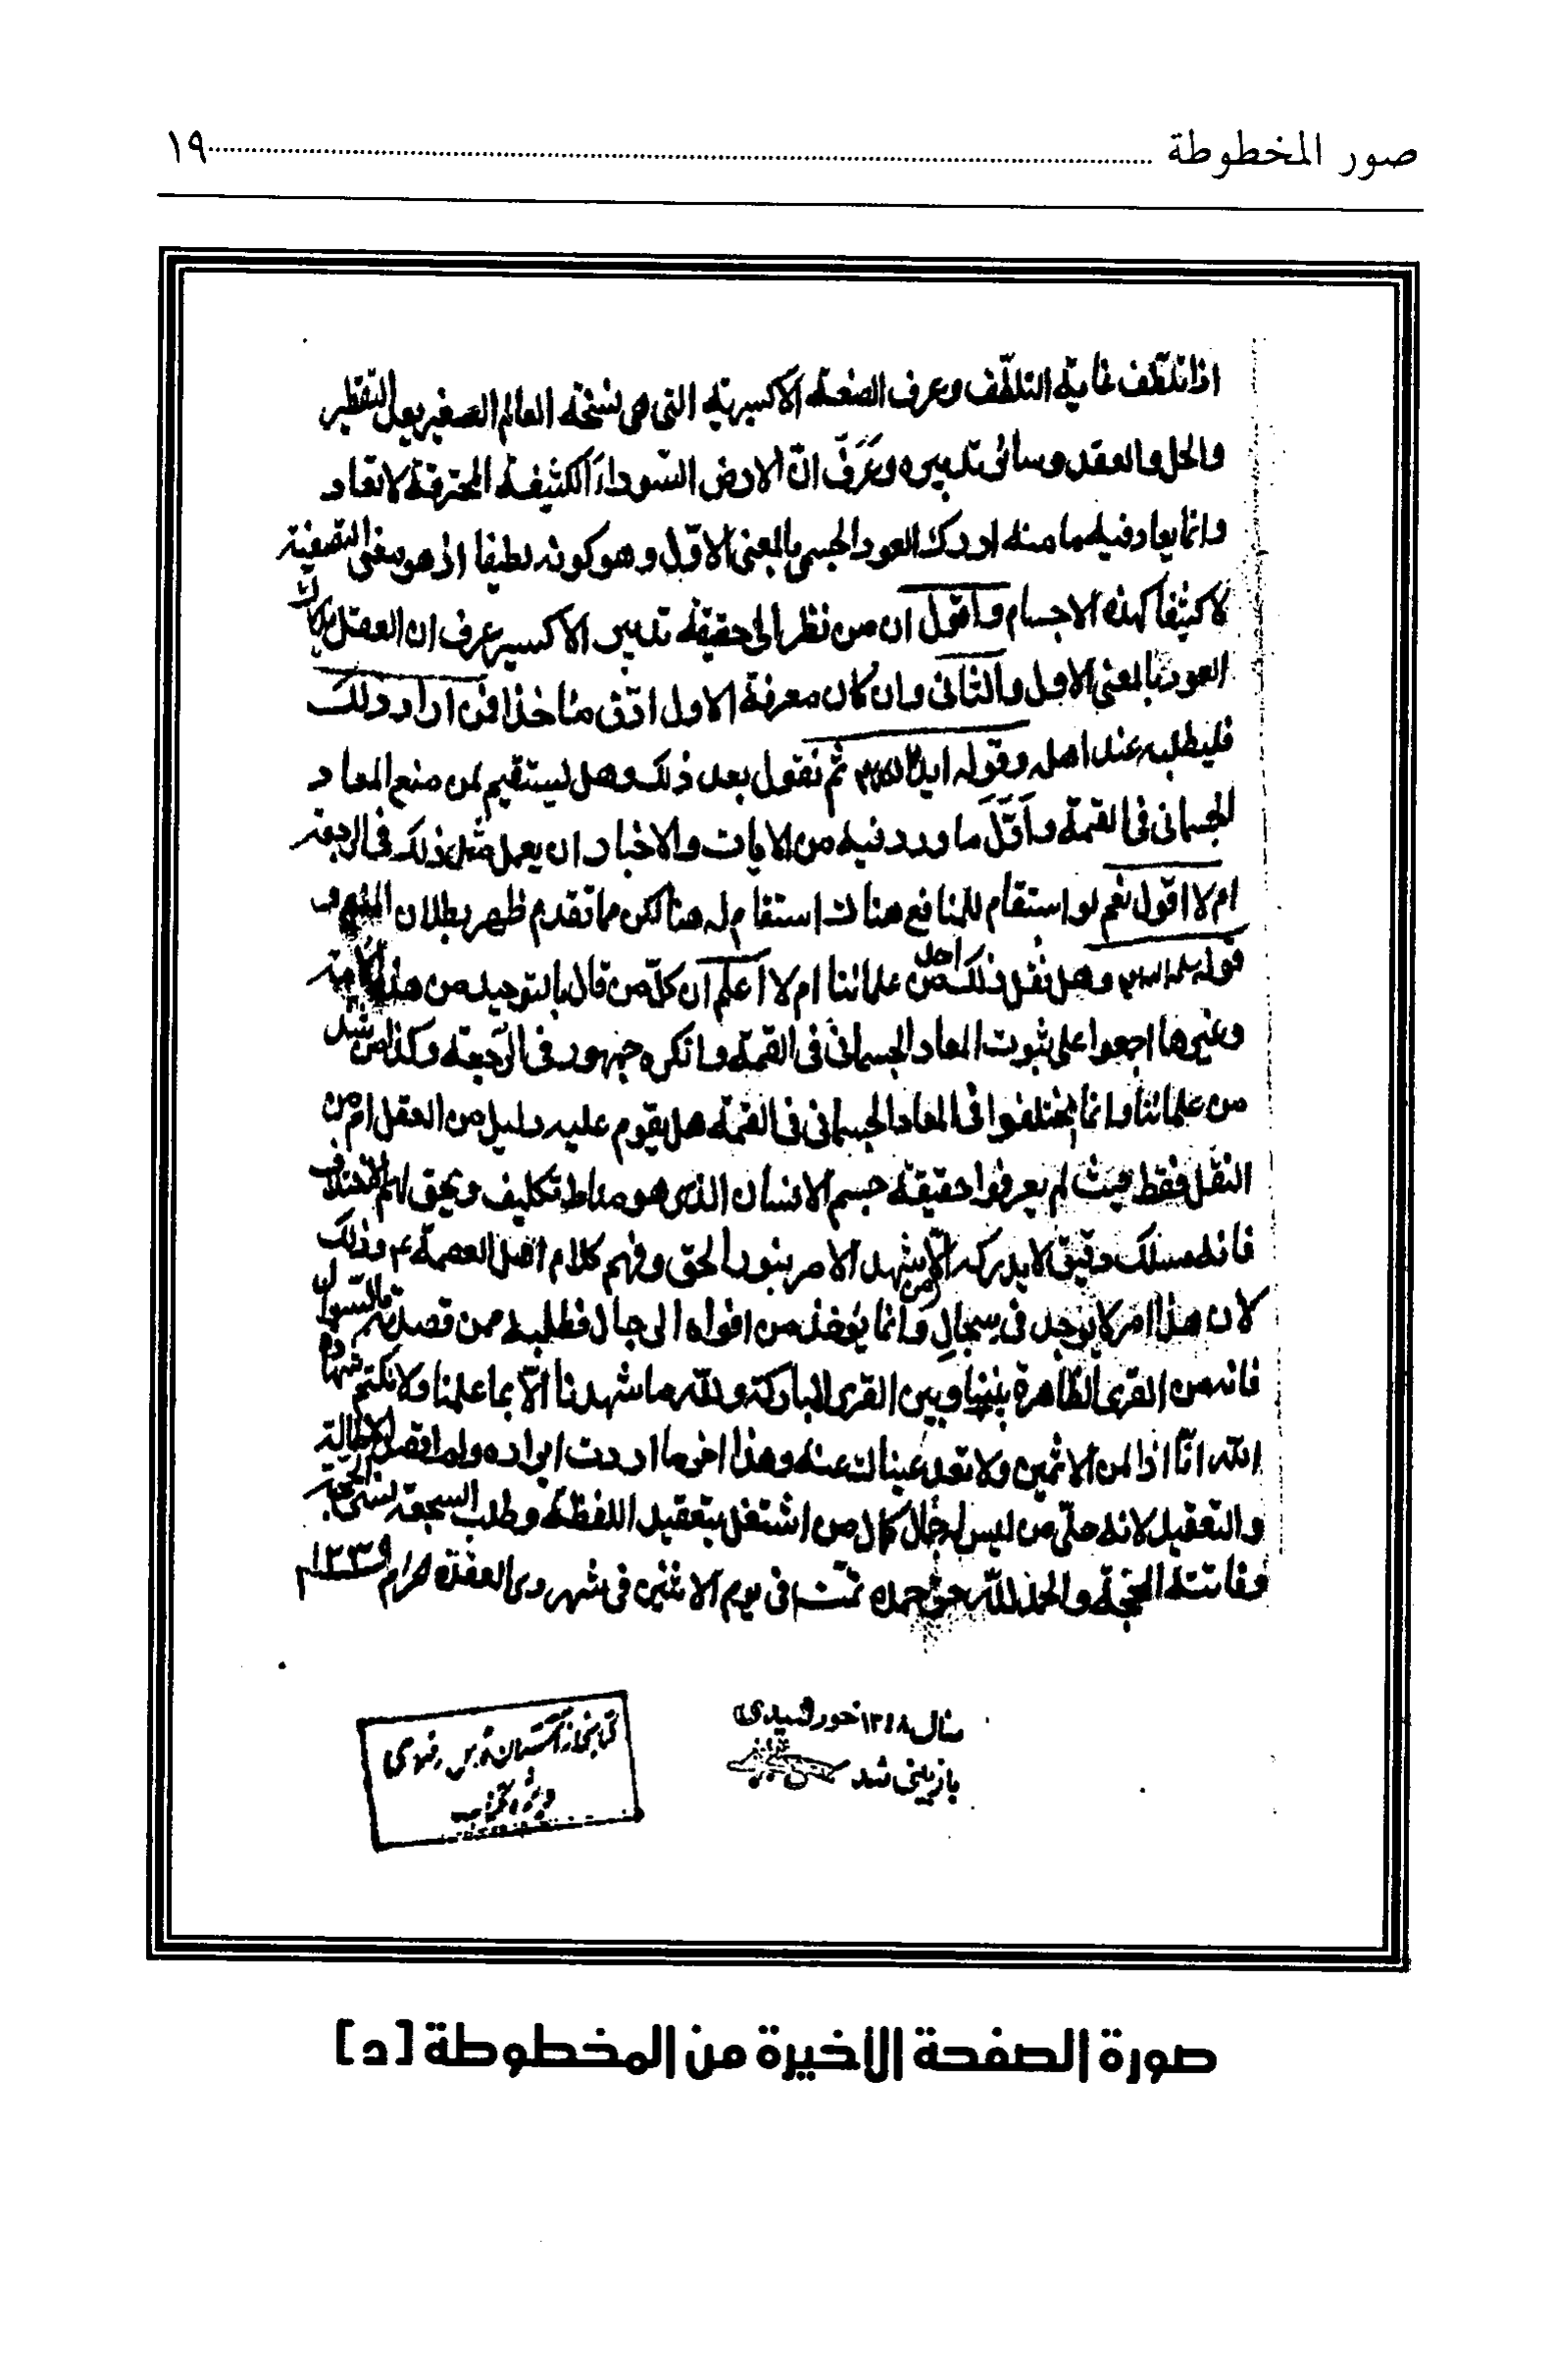 صور المخطوطة ........ ١٩
اذا تلطف غاية التلطف وعرف الصنعة الاكسيرية التى هى نسخة العالم الصغير بعد التقطير
والحل والعقد وسائر تدبيره وعَرَفَ انّ الارض السوداء الكثيفة المحترقة لا تعاد
وانما يعاد فيه ما منه ادرك العود الجسمى بالمعنى الاوّل وهو كونه لطيفا اذ هو معنى التصفية
لا كثيفا كهذه الاجسام واقول ان من نظر الى حقيقة تدبير الاكسير عرف ان العقل
العود بالمعنى الاول والثانى وان كان معرفة الاول ادق مأخذا فمن اراد ذلك
فليطلبه عند اهله وقوله ثم نقول بعد ذلك وهل يستقيم لمن منع المعاد
الجسمانى فى القيمة وأوّلَ ما ورد فيه من الايات والاخبار ان يعمل مثل ذلك فى الرجعة
ام لا اقول نعم لو استقام للمنافع هناك استقام له هنا لكن مما تقدم ظهر بطلان
قوله وهل نقل ذلك احد من علمائنا ام لا اعلم ان كلّ من قال بالتوحيد من هذه الامة
وغيرها اجمعوا على ثبوت المعاد الجسمانى فى القيمة وانكره جمهور فى الرّجعة وكذا من شذ
من علمائنا وانما اختلفوا فى المعاد الجسمانى فى القيمة هل يقوم عليه دليل من العقل ام من
النقل فقط حيث لم يعرفوا حقيقة جسم الانسان الذى هو مناط تكليف ويحق لهم الاختلاف
فانه مسلك دقيق لا يدركه الّا من شهد الامر بنور الحق وفهم كلام اهل العصمة ع وذلك
لان هذا امر لا يوجد فى سجال وانما يؤخذ من افواه الرجال فطلبه ممن قصدته بالسؤال
فانه من القرى الظاهرة بيننا وبين القرى المباركة والله ما شهدنا الّا بما علمنا ولا نكتم شهادة
الله انّا اذا لمن الاثمين ولا تعد عيناك عنه وهذا اخر ما اردت ايراده ولم اقصد الاطالة
والتعقيد لانه حلّى من ليس له مجال كان من اشتغل بتعقيد اللفظة وطلب السجعة نسى الحجة
وفاتته الحجة والحمد لله حق حمده تمّت فى يوم الاثنين فى شهر ذى القعدة الحرام
سال ١٣٤٨ خورشيدى
بازبينى شد
كتابخانه آستان قدس رضوى
صورة الصفحة الأخيرة من المخطوطة [د]